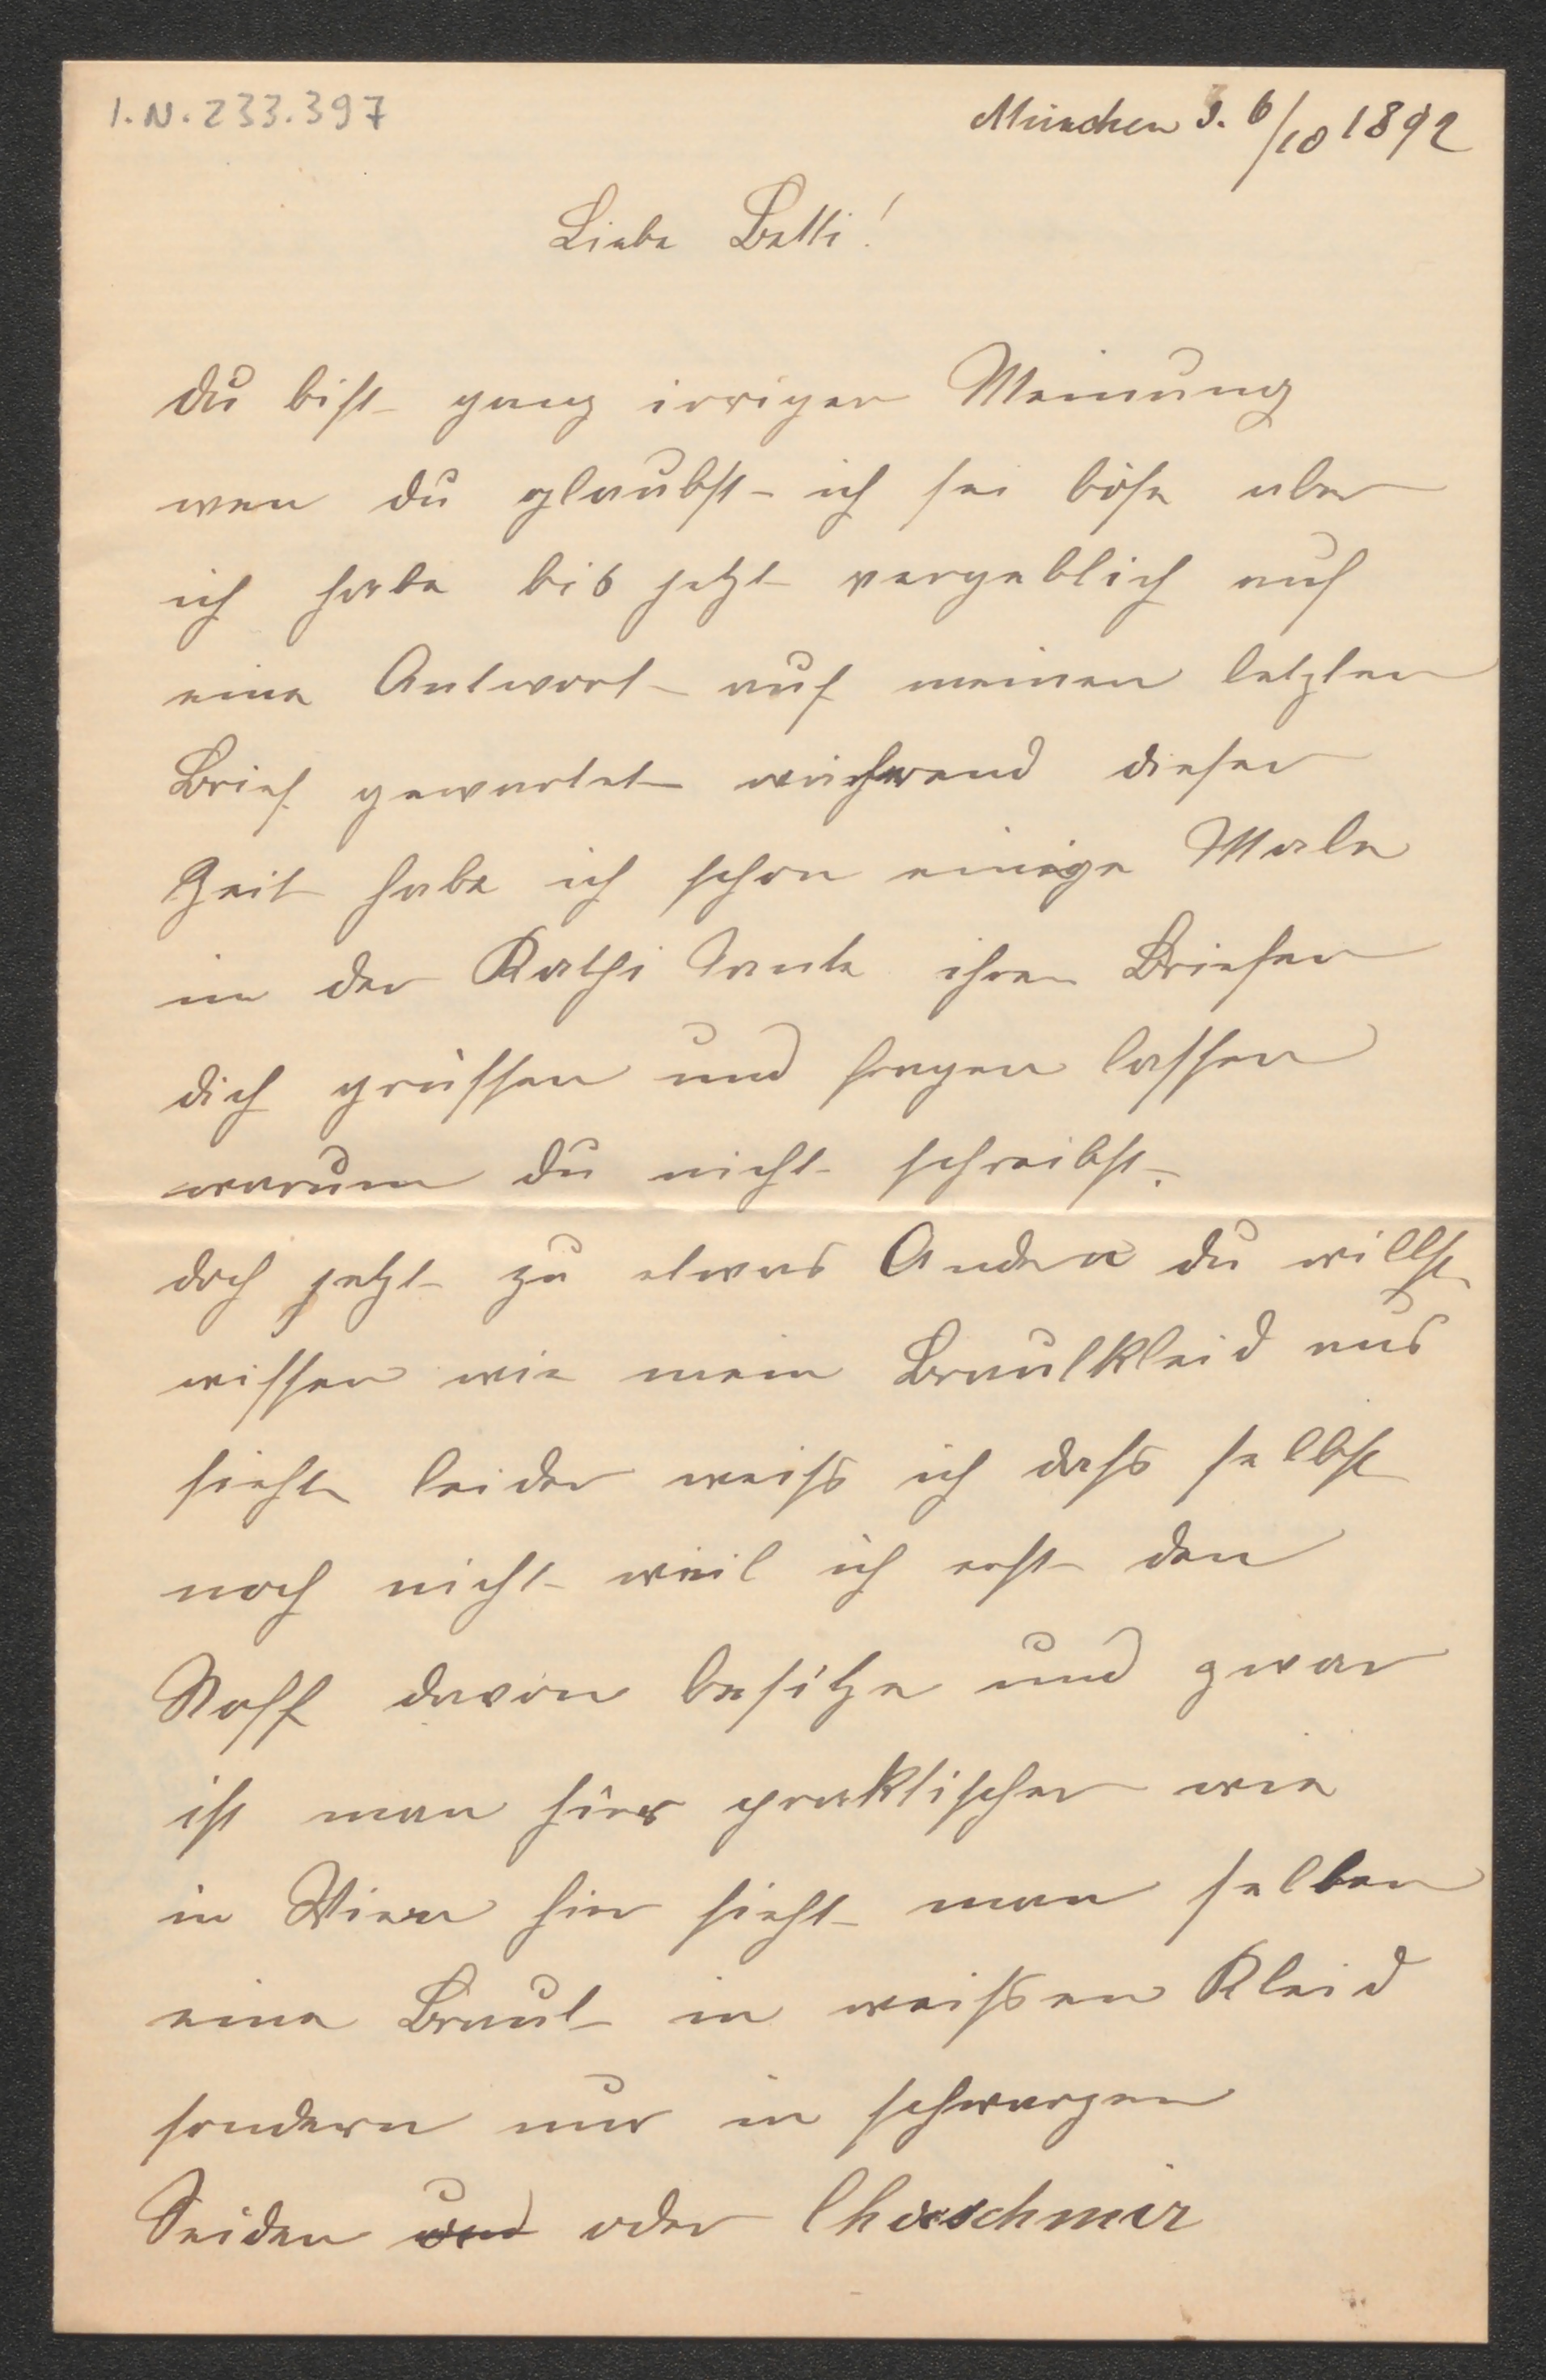 I.N. 233.397
München d. 6/10 1892
Liebe Betti!
du bist ganz irriger Meinung
wen du glaubst ich sei böse aber
ich habe bis jetzt vergeblich auf
eine Antwort auf meinen letzten
Brief gewartet während dieser
Zeit habe ich schon einige Male
in der Kathi Tante ihren Briefen
dich grüssen und fragen lassen
warum du nicht schreibst.
doch jetzt zu etwas Andern du willst
wissen wie mein Brautkleid aus
sieht leider weiss ich dass selbst
noch nicht weil ich erst den
Stoff davon besitze und zwar
ist man hier praktischer wie
in Wien hier sieht man selten
eine Braut in weissen Kleid
sondern nur in schwarzen
Seiden und oder Chaschmir